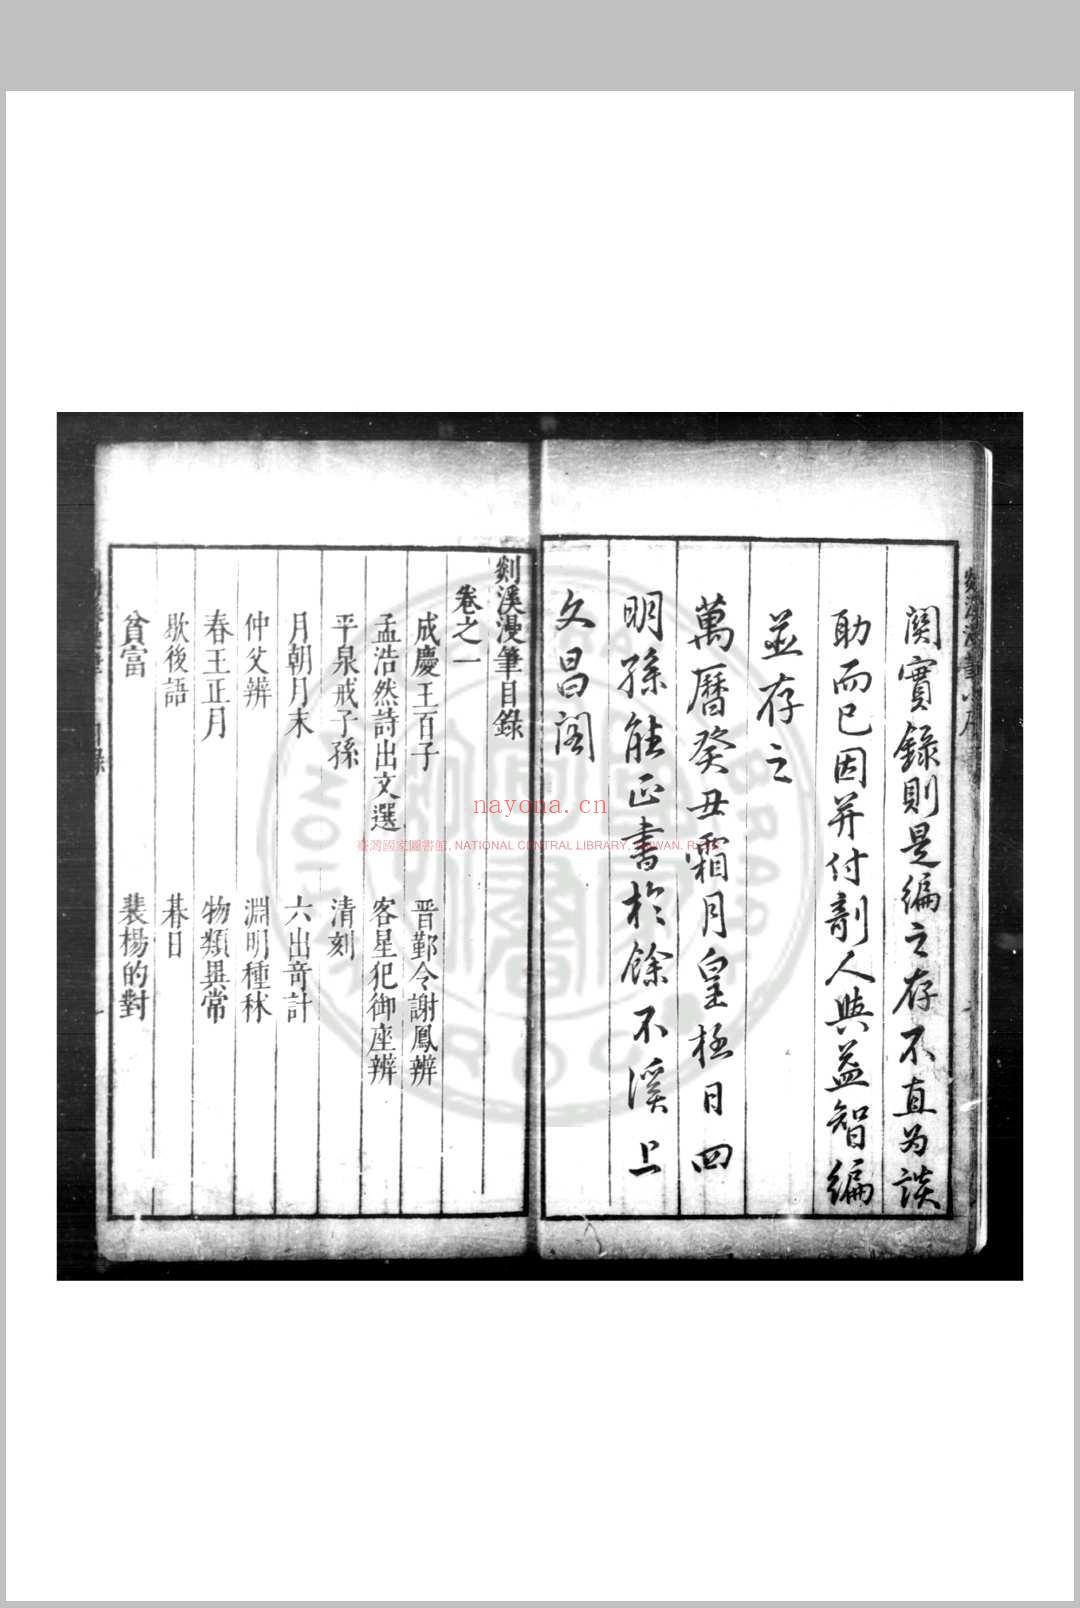 闕實錄則是編之存不直為談
助而已因并付剞人與益智編
並存之
萬曆癸丑霜月皇極日四
明孫能正書於餘不溪上
文昌閣
剡溪漫筆目錄
卷之一
成慶王百子 晋鄞令謝鳳辨
孟浩然詩出文選 客星犯御座辨
平泉戒子孫 清刻
月朝月末 六出竒計
仲父辨 淵明種秫
春王正月 物類異常
歇後語 朞日
貧富 裴楊的對
nayona.cn
臺灣國家圖書館, NATIONAL CENTRAL LIBRARY, TAIWAN. R.O.C.